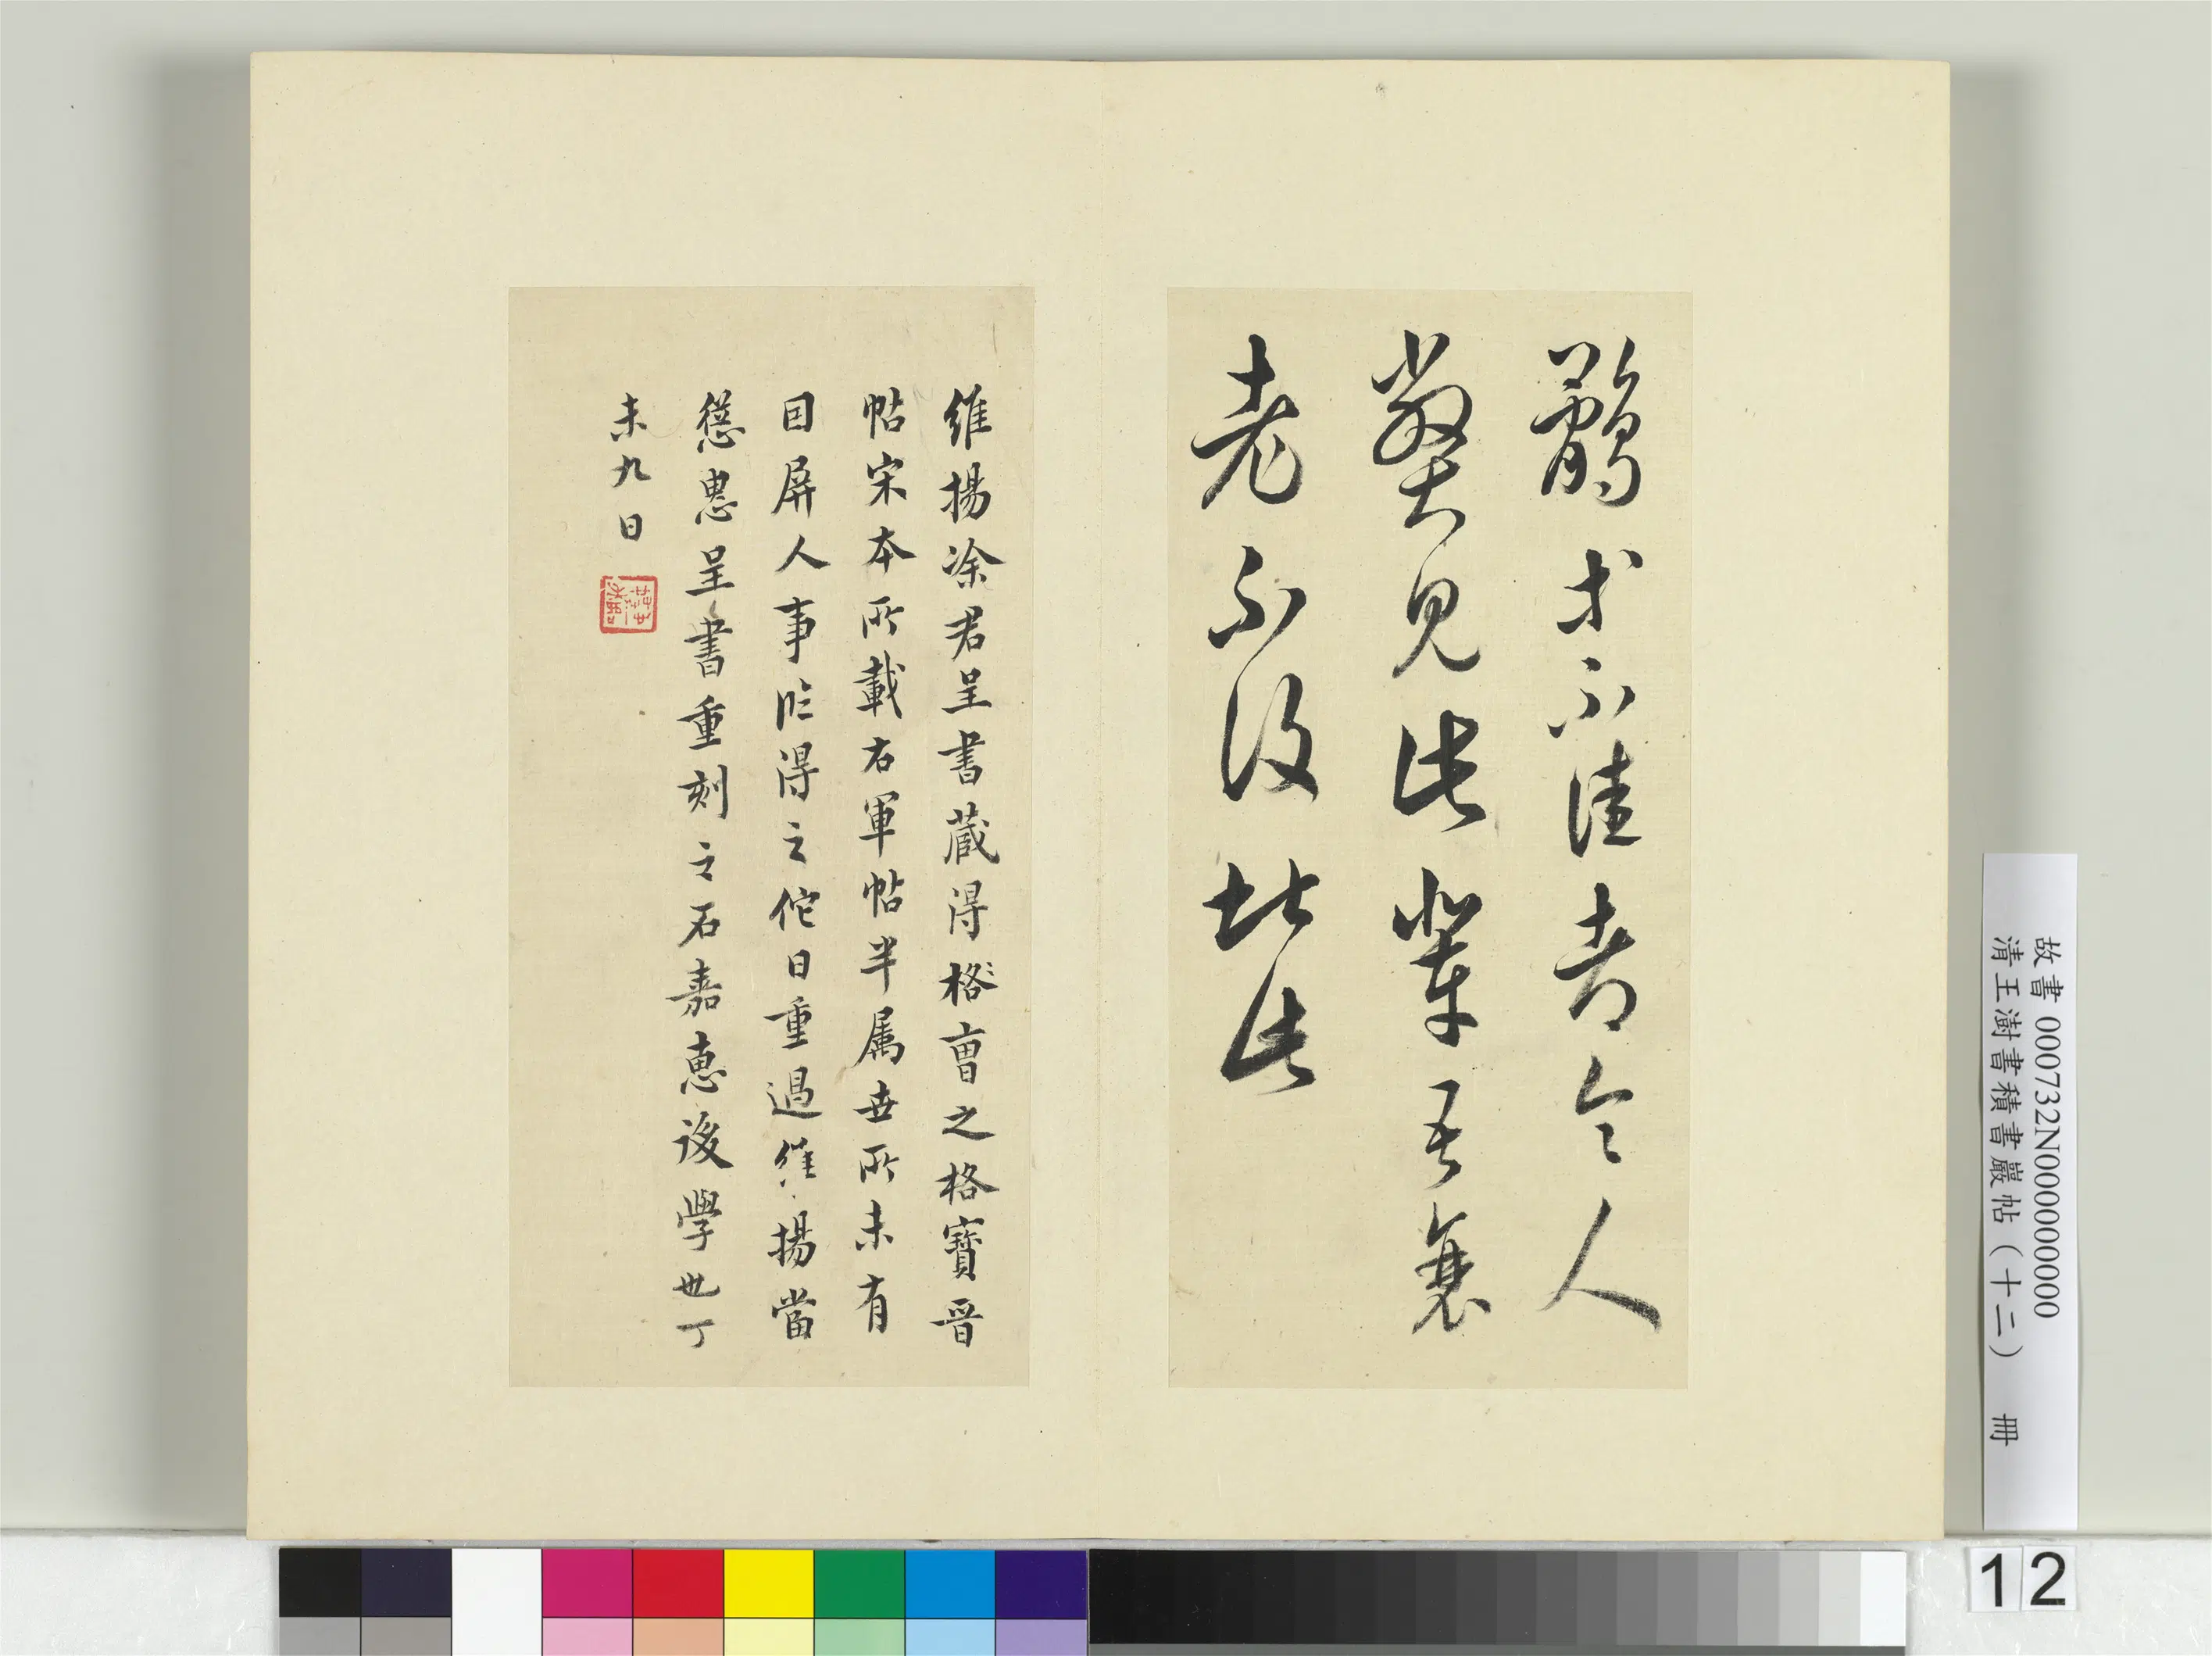 鶻等不佳都令人
弊見此輩吾衰
老不復堪此
維揚涂君呈書藏得格曹之格寶晉
帖宋本所載右軍帖半屬世所未有
因屏人事臨得之佗日重過維揚當
慫恿呈書重刻之石嘉惠後學也丁
未九日
故書 000732N000000000
清王澍書積書巖帖（十二） 冊
12